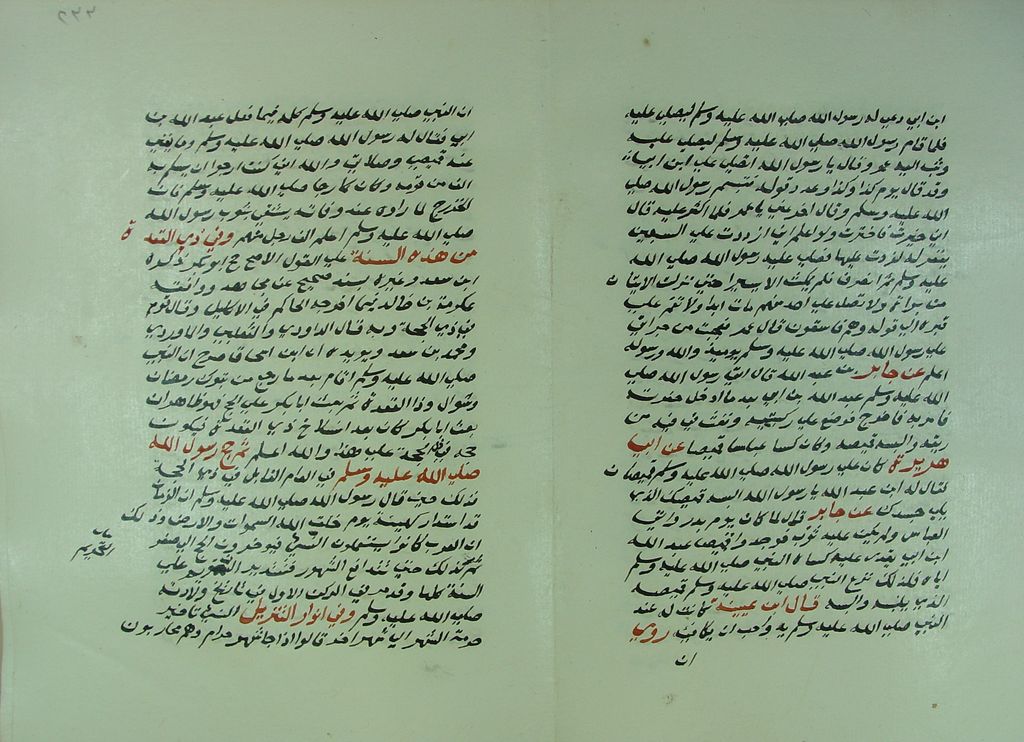 ابن ابي دعي له رسول الله صلي الله عليه وسلم ليصلي عليه
فلما قام رسول الله صلي الله عليه وسلم ليصلي عليه
وثب اليه عمر وقال يا رسول الله اتصلي علي ابن ابي
وقد قال يوم كذا وكذا وعد قوله فتبسم رسول الله صلي
الله عليه وسلم وقال اخر عني يا عمر فلما اكثر عليه قال
اني خيرت فاخترت ولو اعلم اني ان زدت علي السبعين
يغفر له لزدت عليها فصلي عليه رسول الله صلي الله
عليه وسلم ثم انصرف فلم يمكث الا يسيرا حتي نزلت الايتان
من براة ولا تصل علي احد منهم مات ابدا ولا تقم علي
قبره الي قوله وهم فاسقون قال عمر فعجبت من جراتي
علي رسول الله صلي الله عليه وسلم يومئذ والله ورسوله
اعلم عن جابر بن عبد الله قال اتي رسول الله صلي
الله عليه وسلم عبد الله بن ابي بعد ما ادخل حفرته
فامر به فاخرج فوضع علي ركبتيه ونفث في فيه من
ريقه والبسه قميصه وكان كسا عباسا قميصا عن ابي
هريرة كان علي رسول الله صلي الله عليه وسلم قميصان
فقال له ابن عبد الله يا رسول الله البسه قميصك الذي
يلي جسدك عن جابر قال لما كان يوم بدر واتي
العباس ولم يكن عليه ثوب فوجدوا قميص عبد الله
ابن ابي يقدر عليه كساه النبي صلي الله عليه وسلم
اياه فلذلك نزع النبي صلي الله عليه وسلم قميصه
الذي يلبسه والبسه قال ابن عيينة كانت له عند
النبي صلي الله عليه وسلم يد واحب ان يكافيه روي
ان
٢٣٣
ان النبي صلي الله عليه وسلم كلم فيما فعل عبد الله بن
ابي فقال له رسول الله صلي الله عليه وسلم وما يغني
عنه قميصي وصلاتي والله اني كنت ارجو ان يسلم به
الف من قومه وكان كما رجا صلي الله عليه وسلم فان
الخزرج لما راوه عند وفاته يستشفي بثوب رسول الله
صلي الله عليه وسلم اسلم الف رجل منهم وفي ذي القعدة
من هذه السنة علي القول الاصح حج ابو بكر ذكره
ابن سعد وغيره بسند صحيح عن مجاهد ووافقه
عكرمة بن خالد فيما اخرجه الحاكم في الاكليل وقال قوم
في ذي الحجة وبه قال الداودي والثعلبي والماوردي
ومحمد بن سعد ويؤيده ان ابن اسحاق صرح ان النبي
صلي الله عليه وسلم اقام بعد ما رجع من تبوك رمضان
وشوال وذا القعدة ثم بعث ابا بكر علي الحج فهو ظاهر ان
بعث ابا بكر كان بعد انسلاخ ذي القعدة فيكون
حجه في ذي الحجة علي هذا والله اعلم ثم حج رسول الله
صلي الله عليه وسلم في العام القابل في ذي الحجة
فذلك حين قال رسول الله صلي الله عليه وسلم ان الزمان
قد استدار كهيئته يوم خلق الله السموات والارض وذلك
ان العرب كانوا يستعملون النسي فيؤخرون الحج الي صفر
ثم كذلك حتي تتدافع الشهور فيستدير التحريم علي
التحريم
السنة كلها وقد مر في الركن الاول في تاريخ ولادته
صلي الله عليه وسلم وفي انوار التنزيل النسي تاخير
حرمة الشهر الي شهر اخر كانوا اذا جا شهر حرام وهم محاربون